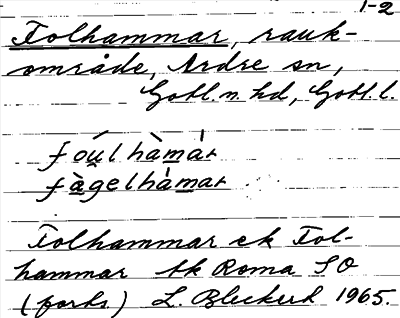 1-2
Folhammar, rauk-
område, Ardre sn,
Gotl. n. hd, Gotl. l.
foúlhàmàr
fàgelhàmar
Folhammar ek Fol-
hammar tk Roma SO
(forts.) L. Bleckert 1965.